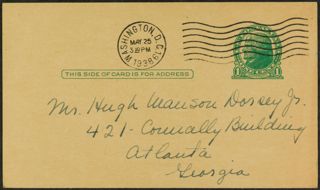 WASHINGTON, D.C.
MAY 25
1938
1 1
THIS SIDE OF CARD IS FOR ADDRESS
Mr. Hugh Manson Dorsey Jr.
421 - Connally Building
Atlanta
Georgia